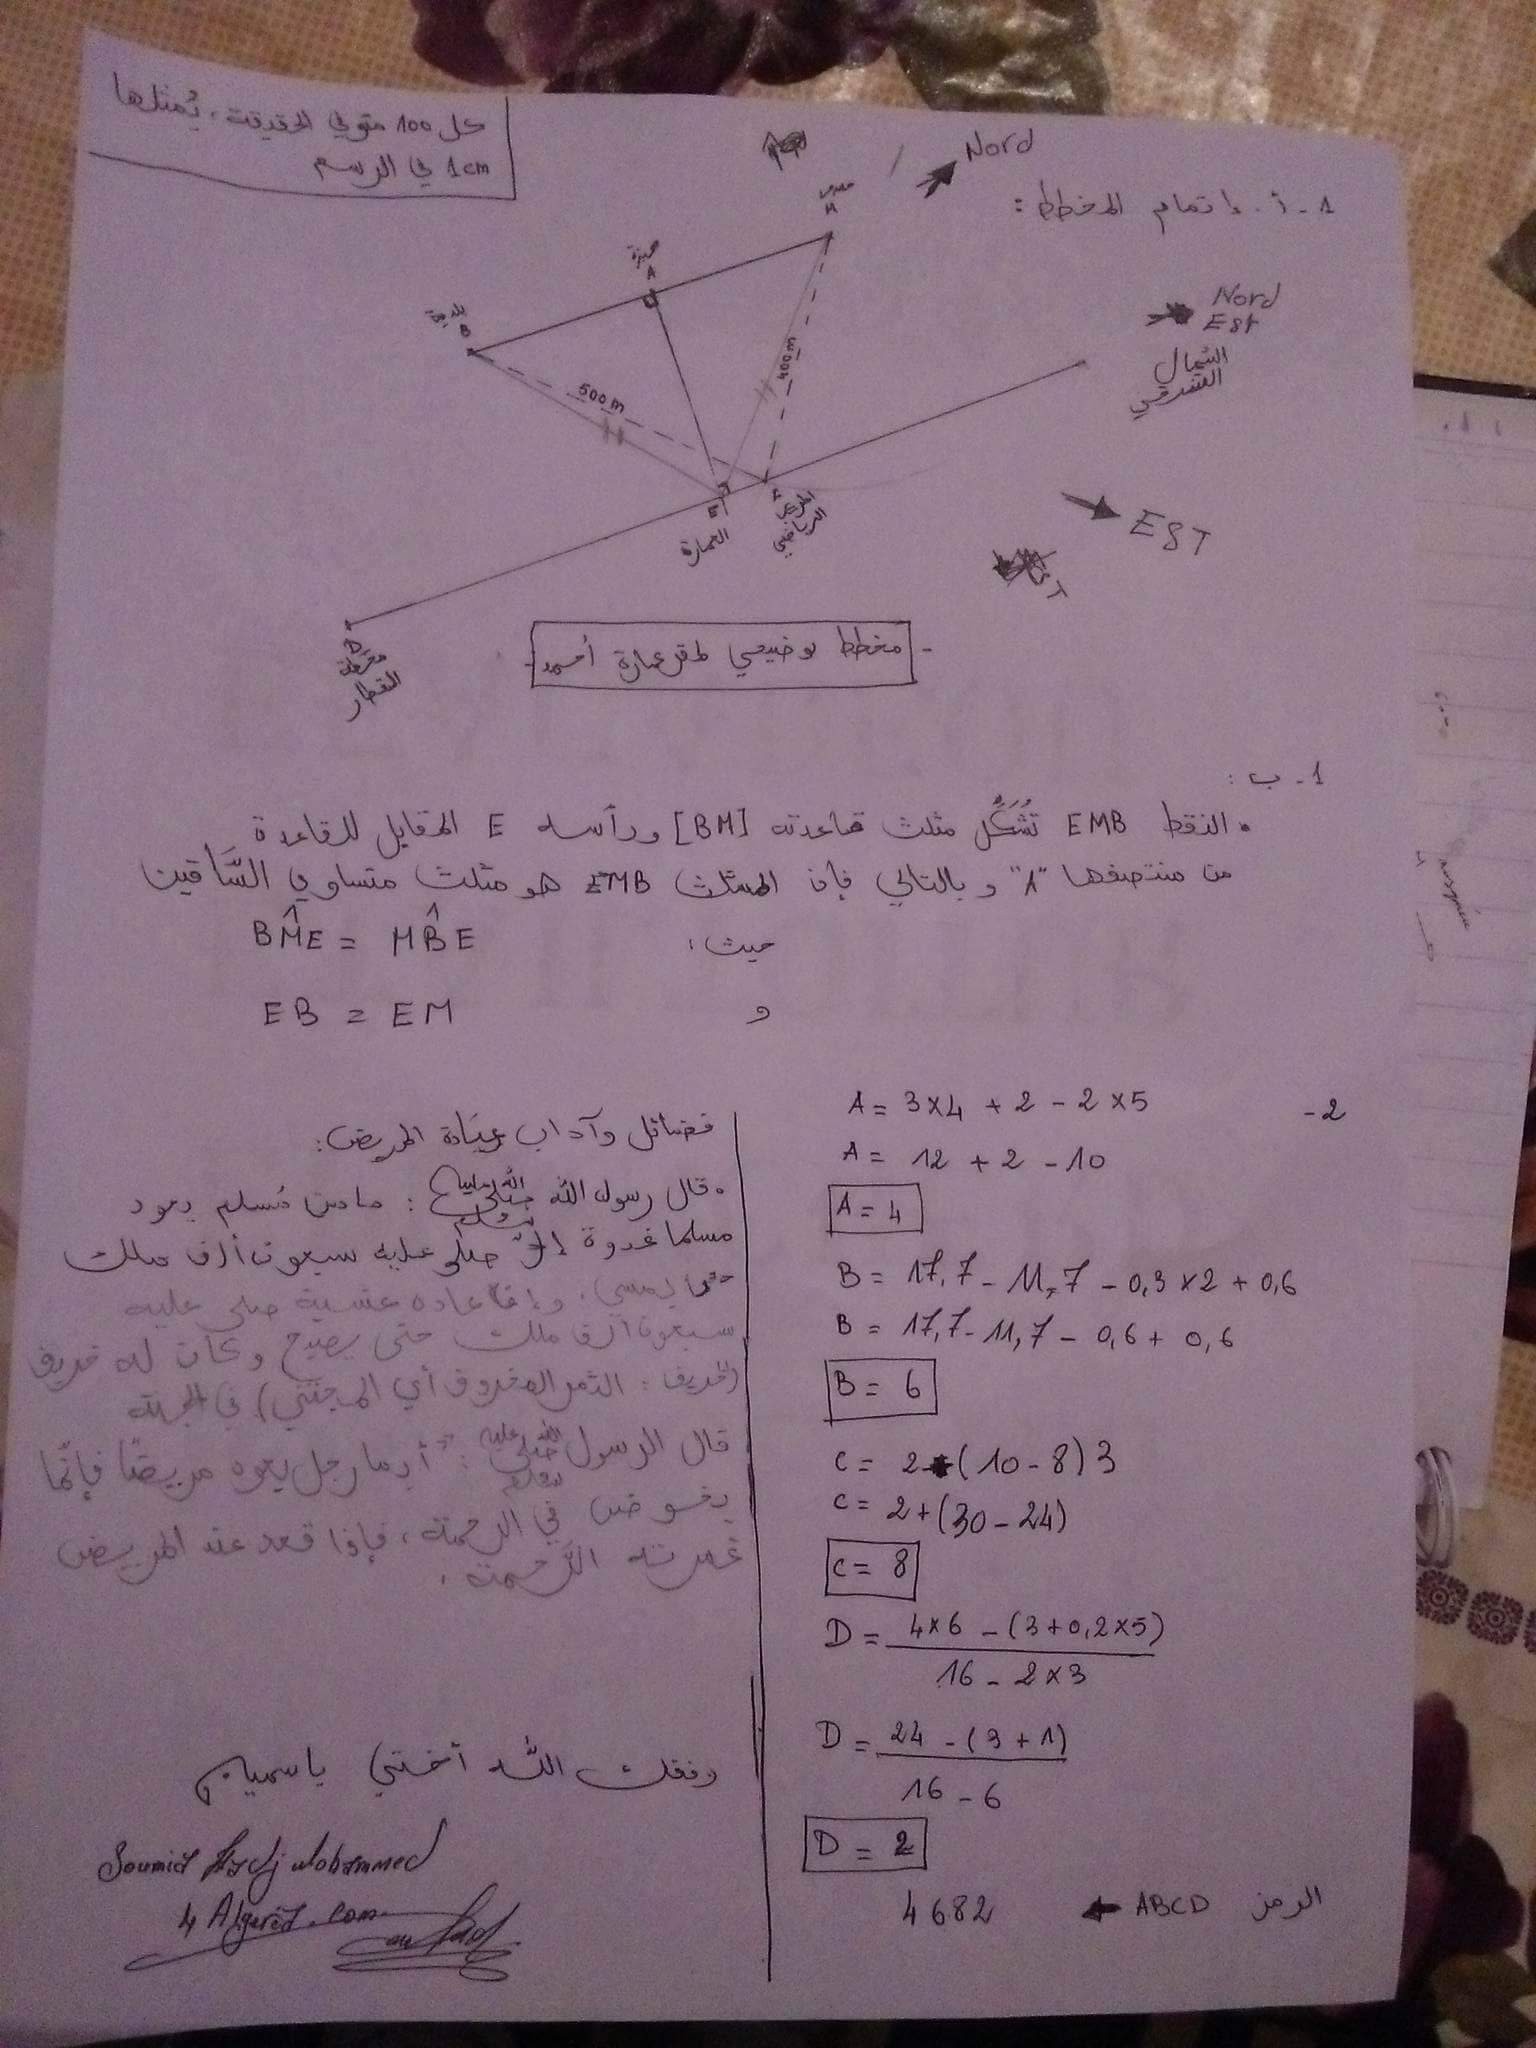 كل 100 متر في الحقيقة، يُمثلها
1cm في الرسم
Nord
1-أ. إتمام المخطط:
M
A
B
Nord
Est
الشمال
الشرقي
500m
400m
EST
E
العمارة
المركب
الرياضي
D
محطة
القطار
- مخطط توضيحي لمقر عمارة أحمد -
1-ب:
• النقط EMB تُشَكِّل مثلث قاعدته [BM] ورأسه E المقابل للقاعدة
من منتصفها "A" وبالتالي فإن المثلث EMB هو مثلث متساوي السَّاقين
حيث: BM̂E = MB̂E
و EB = EM
2-
A = 3×4 + 2 - 2×5
A = 12 + 2 - 10
A = 4
B = 17,7 - 11,7 - 0,3×2 + 0,6
B = 17,7 - 11,7 - 0,6 + 0,6
B = 6
C = 2+(10-8)3
C = 2+(30-24)
C = 8
D = 4×6 - (3+0,2×5)
16 - 2×3
D = 24 - (3+1)
16 - 6
D = 2
الرمز ABCD ← 4682
فضائل وآداب عِيَادة المريض:
• قال رسول الله صلى الله عليه وسلم: ما من مُسلم يعود
مسلما غدوة إلاّ صلى عليه سبعون ألف ملك
حتى يمسي، وإن عاده عشية صلى عليه
سبعون ألف ملك حتى يصبح وكان له خريف
(الخريف: الثمر المخروف أي المجتنى) في الجنة
قال الرسول صلى الله عليه وسلم: "أيما رجل يعود مريضًا فإنّما
يخوض في الرحمة، فإذا قعد عند المريض
غمرته الرَّحمة.
وفقك الله أختي ياسمين
Soumia Hadj Mohammed
4 Algeria.com